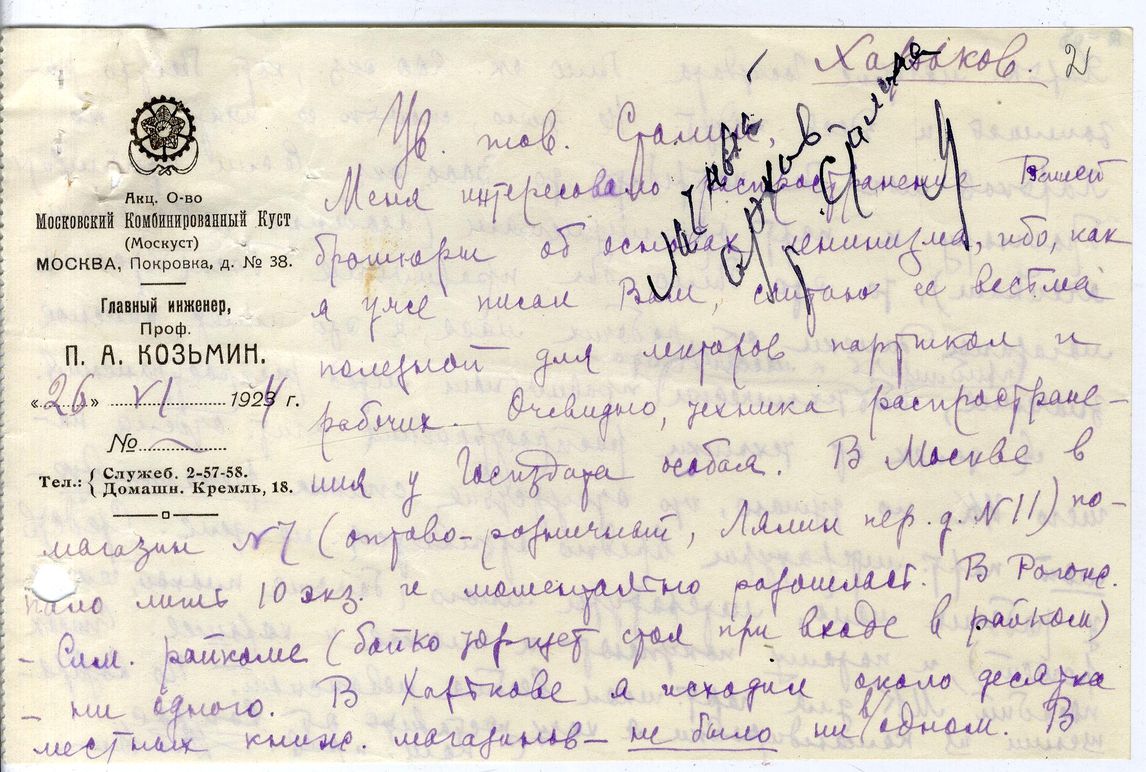 Харьков. 2
Мой архив
И. Сталин
Акц. О-во
Московский Комбинированный Куст
(Москуст)
МОСКВА, Покровка, д. № 38.
Главный инженер,
Проф.
П. А. КОЗЬМИН.
«26» VI 1924 г.
№
Тел.: { Служеб. 2-57-58.
Домашн. Кремль, 18.
Ув. тов. Сталин,
Меня интересовало распространение Вашей
брошюры об основах ленинизма, ибо, как
я уже писал Вам, считаю ее весьма
полезной для лекторов партшкол и
рабочих. Очевидно, техника распростране-
ния у Госиздата особая. В Москве в
магазин №7 (оптово-розничный, Лялин пер. д. N 11) по-
пало лишь 10 экз. и моментально разошлась. В Рогожс.
-Сим. райкоме (бойко торгует стол при входе в райком)
- ни одного. В Харькове я исходил около десятка
местных книжн. магазинов - не было ни в одном. В